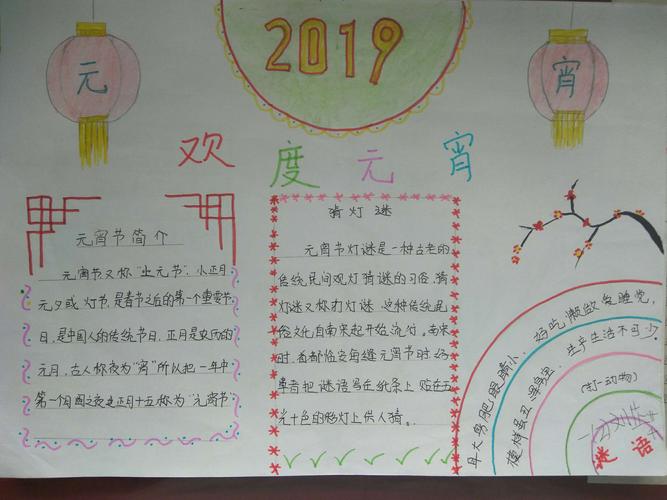 元
2019
宵
欢度元宵
元宵节简介
元宵节又称“上元节”、小正月
元夕或灯节,是春节之后的第一个重要节
日,是中国人的传统节日,正月是农历的
元月,古人称夜为“宵”所以把一年中
第一个月圆之夜正月十五称为“元宵节”
猜灯谜
元宵节灯谜是一种古老的
传统民间观灯猜谜的习俗。猜
灯谜又称打灯谜 这种传统民
俗文化自南宋起开始流行。南宋
时,首都临安每逢元宵节时
单者把谜语写在纸条上 贴在五
光十色的彩灯上供人猜。
耳大身肥眼睛小,好吃懒做爱睡觉,
模样虽丑浑身宝,生产生活不可少。
(打一动物)
谜语